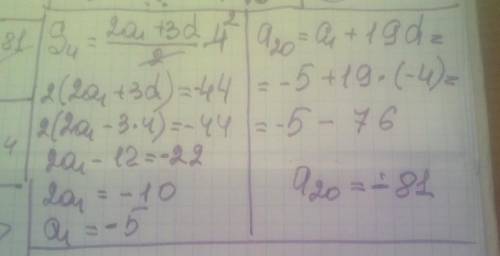 81
S₄ = (2a₁ + 3d)/2 · 4²
2(2a₁ + 3d) = -44
2(2a₁ - 3·4) = -44
4
2a₁ - 12 = -22
2a₁ = -10
a₁ = -5
a₂₀ = a₁ + 19d =
= -5 + 19·(-4) =
= -5 - 76
a₂₀ = -81